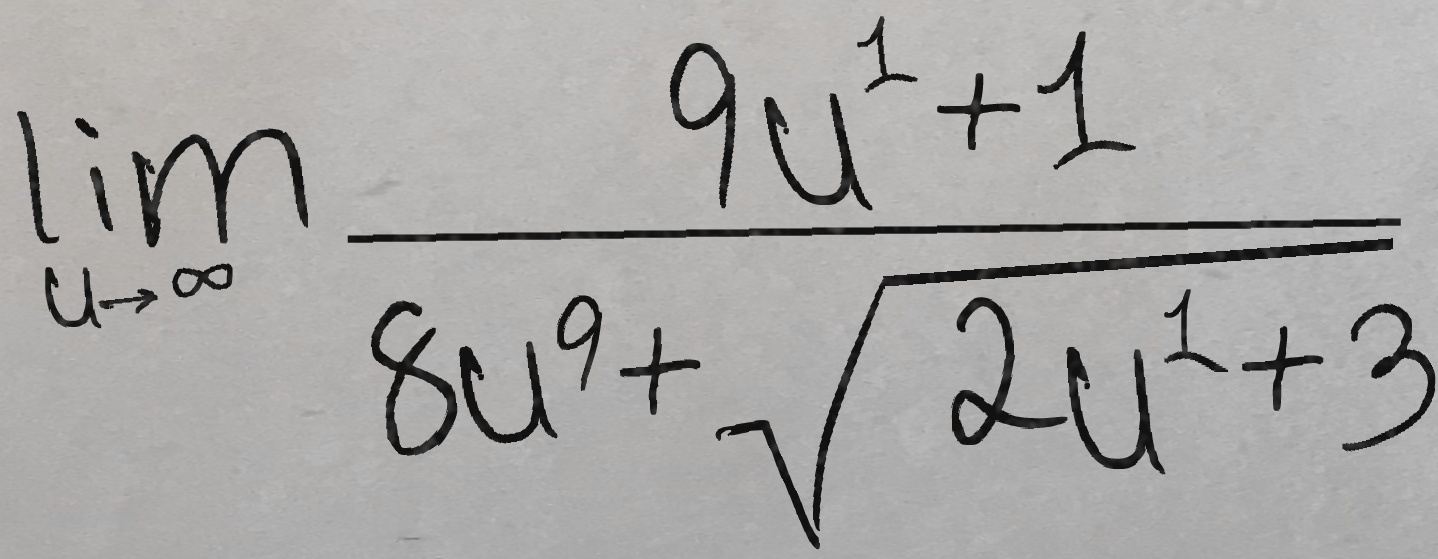 \lim_{u \to \infty} \frac{9u^1+1}{8u^9+\sqrt{2u^1+3}}